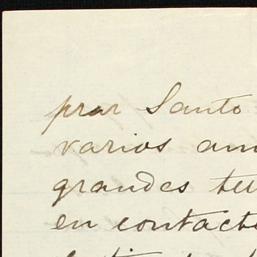 prar Santo
varios am
grandes te
en contact